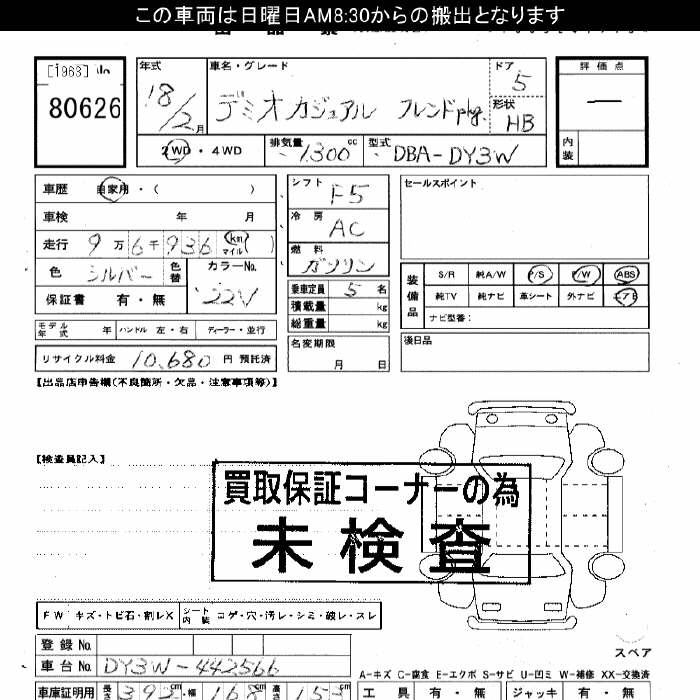 この車両は日曜日AM8:30からの搬出となります
[1963]
80626
年式
18/2月
車名・グレード
デミオ カジュアル フレンドpkg.
ドア
5
形状
HB
評価点
―
内装
2WD・4WD
排気量
1300cc
型式
DBA-DY3W
車歴 自家用・( )
車検 年 月
走行 9万6千936 km マイル ( )
色 シルバー 色替
カラーNo.
22V
保証書 有・無
モデル年式 年 ハンドル 左・右 ディーラー・並行
リサイクル料金 10,680 円 預託済
シフト
F5
冷房
AC
燃料
ガソリン
乗車定員 5 名
積載量 kg
総重量 kg
名変期限
月 日
セールスポイント
装備品
S/R 純A/W P/S P/W ABS
純TV 純ナビ 革シート 外ナビ エアB
ナビ型番:
後日品
【出品店申告欄(不良箇所・欠品・注意事項等)】
【検査員記入】
買取保証コーナーの為
未検査
FW キズ・トビ石・割レX シート内装 コゲ・穴・汚レ・シミ・破レ・スレ
スペア
登録No.
車台No. DY3W-442566
A-キズ C-腐食 E-エクボ S-サビ U-凹ミ W-補修 XX-交換済
車庫証明用 長さ 392cm・幅 168cm 高さ 153
工具 有・無 ジャッキ 有・無